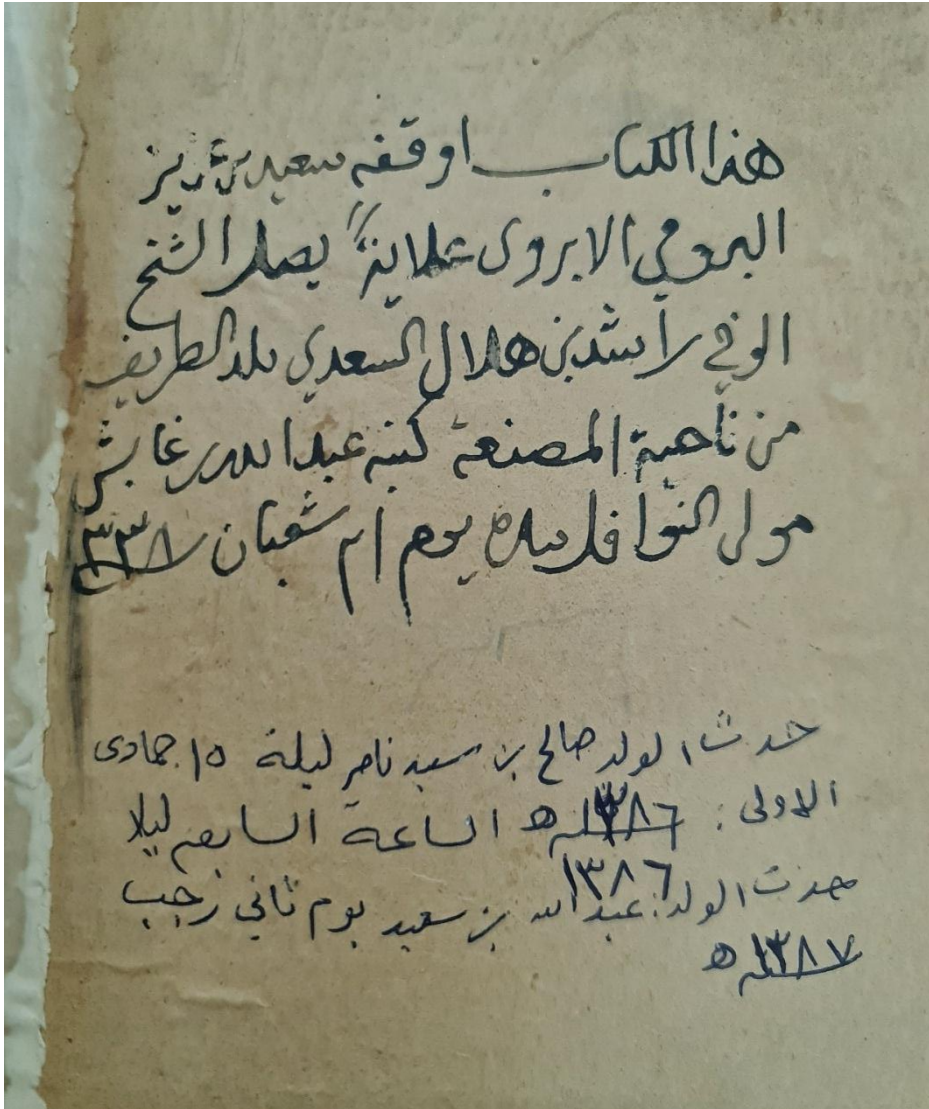 هذا الكتاب اوقفه سعيد بن
البرومي الابروى يصل الشيخ
الوفي راشد بن هلال السعدي بلد الطريف
من ناحية المصنعة كتبه عبدالله بن غابش
مولى النوافل يوم شعبان ٣٣٨
حدث الولد صالح بن سعيد ناصر ليلة ١٥ جمادى
الاولى : ١٣٨٦ ه الساعة السابعه ليلا
١٣٨٦
حدث الولد عبدالله بن سعيد يوم ثاني رجب
١٣٨٧ ه